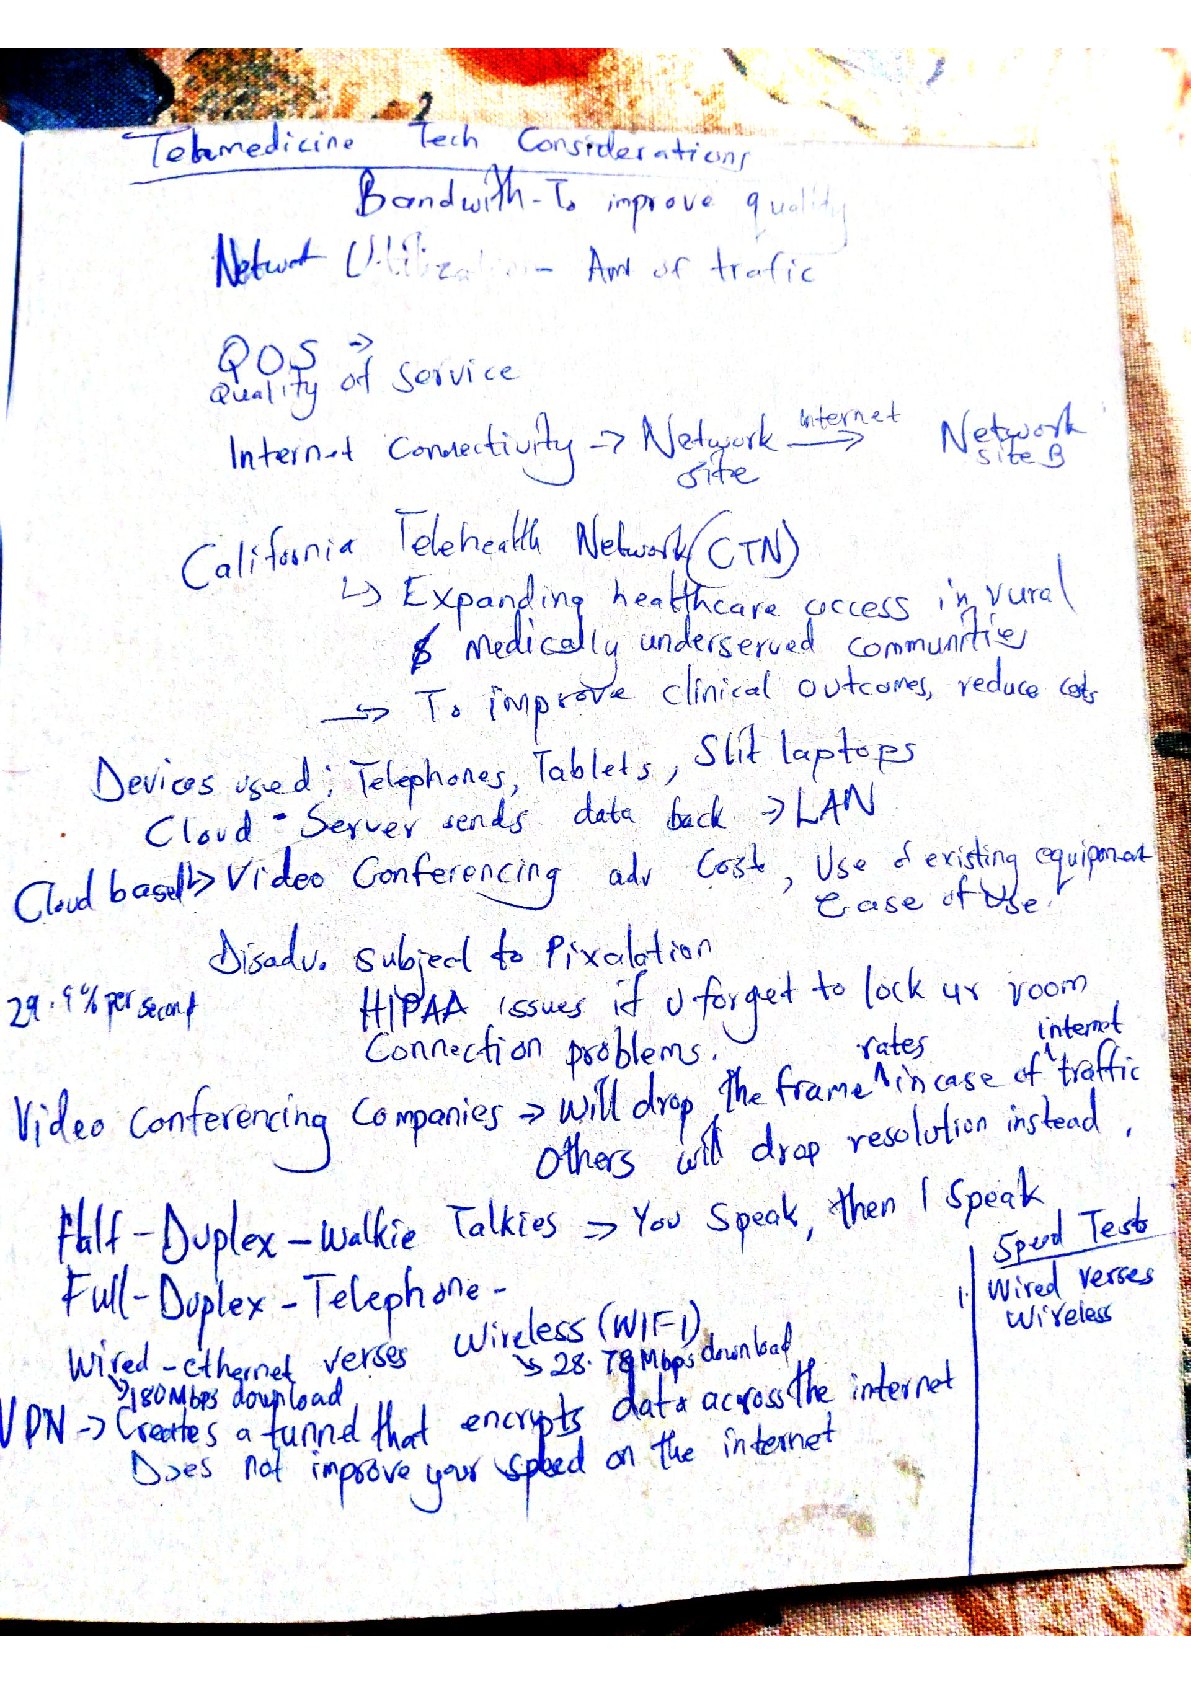 Telemedicine Tech Considerations
Bandwith - To improve quality
Network Utilization - Amt of trafic
QOS →
Quality of Service
Internet Connectivity → Network site —internet→ Network Site B
California Telehealth Network (CTN)
↳ Expanding healthcare access in rural
& Medically underserved communities
→ To improve clinical outcomes, reduce costs
Devices used; Telephones, Tablets, Slit laptops
Cloud - Server sends data back → LAN
Cloud based → Video Conferencing adv Cost, Use of existing equipment
Ease of Use.
Disadv. Subject to Pixalation
29.9% per second
HIPAA issues if U forget to lock ur room
Connection problems.
Video Conferencing Companies → Will drop the frame rates in case of internet traffic
Others will drop resolution instead.
Half-Duplex - Walkie Talkies → You Speak, then I Speak
Full-Duplex - Telephone -
Wired - ethernet verses Wireless (WIFI)
↳ 180Mbps download
↳ 28.78Mbps download
VPN → Creates a tunnel that encrypts data across the internet
Does not improve your speed on the internet
Speed Tests
1. Wired verses
Wireless